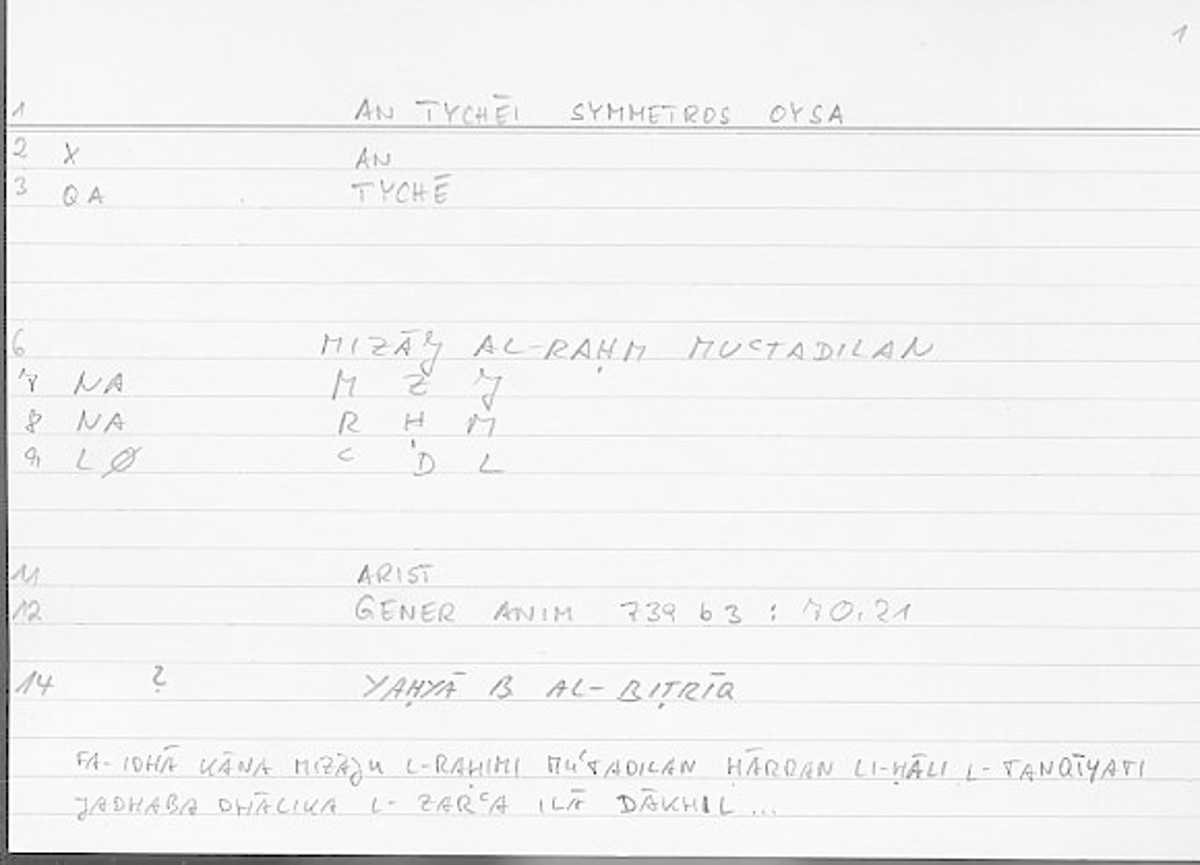 1
1 AN TYCHĒI SYMMETROS OYSA
2 X AN
3 QA TYCHĒ
6 MIZĀǧ AL-RAḤM MUCTADILAN
7 NA M Z ǧ
8 NA R Ḥ M
9 LØ C D L
11 ARIST
12 GENER ANIM 739 b 3 : 70.21
14 ? YAḤYĀ B AL-BIṬRĪQ
FA-IDHĀ KĀNA MIZĀǧU L-RAḤIMI MUʿTADILAN ḤĀRRAN LI-ḤĀLI L-TANQĪYATI
ǧADHABA DHĀLIKA L-ZARCA ILĀ DĀKHIL ...